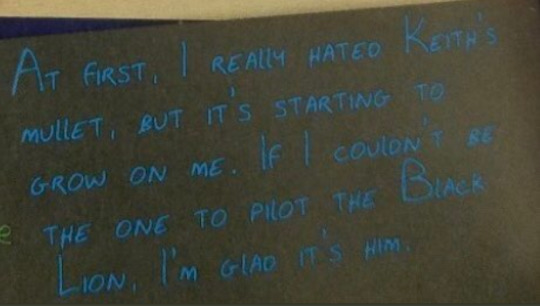 At first, I really hated Keith's
mullet, but it's starting to
grow on me. If I couldn't be
the one to pilot the Black
Lion, I'm glad it's him.